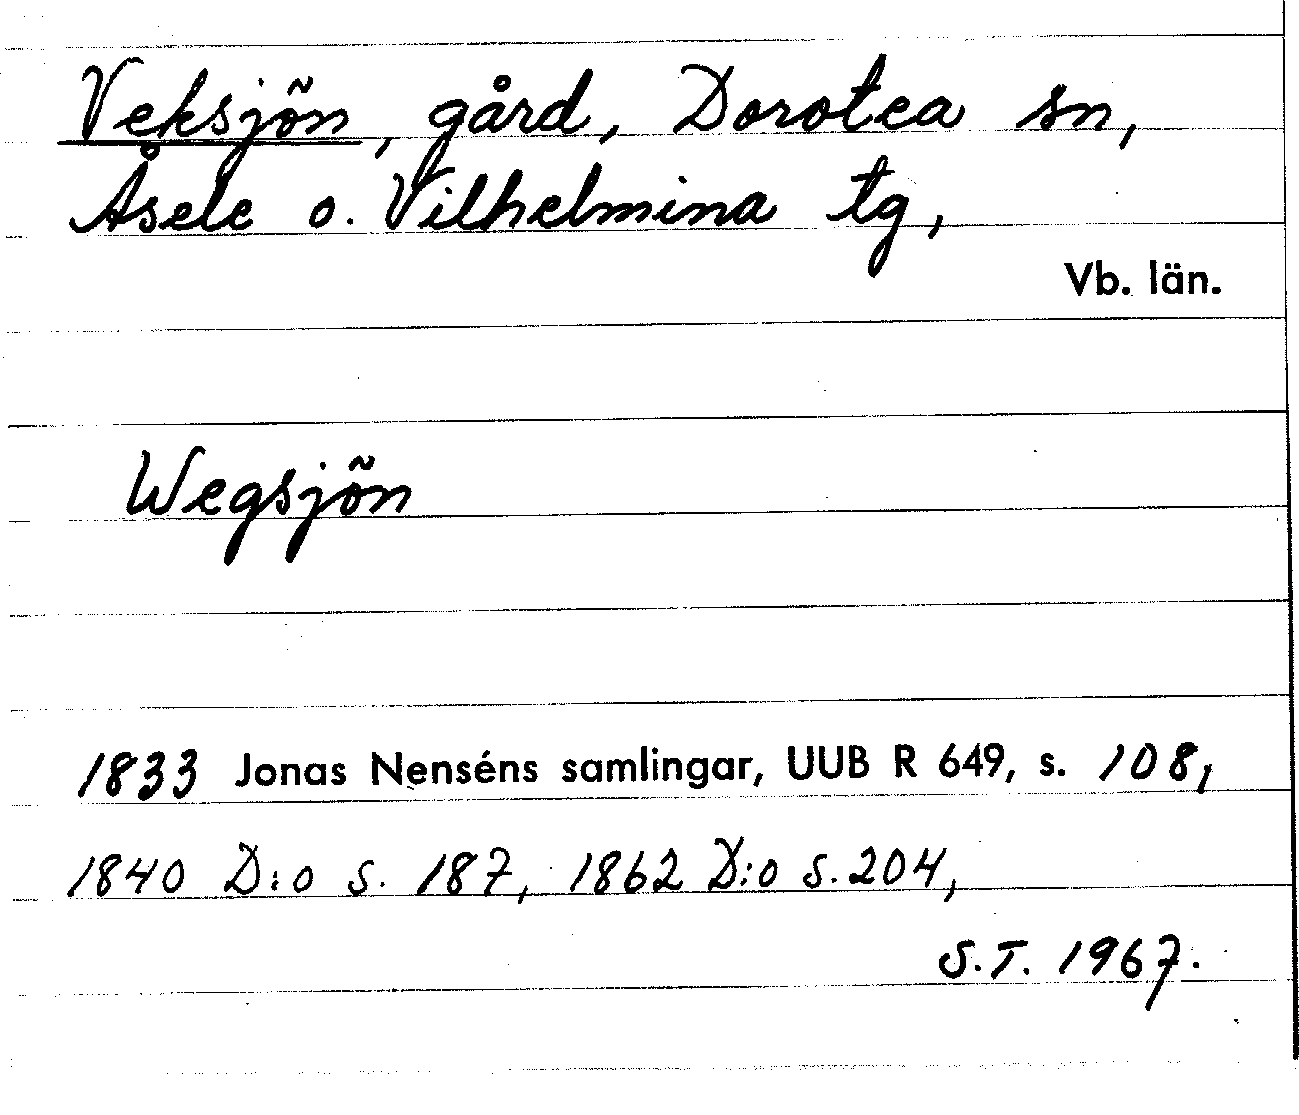 Veksjön, gård, Dorotea sn,
Åsele o. Vilhelmina tg,
Vb. län.
Wegsjön
1833 Jonas Nenséns samlingar, UUB R 649, s. 108,
1840 D:o s. 187, 1862 D:o s. 204,
S.T. 1967.